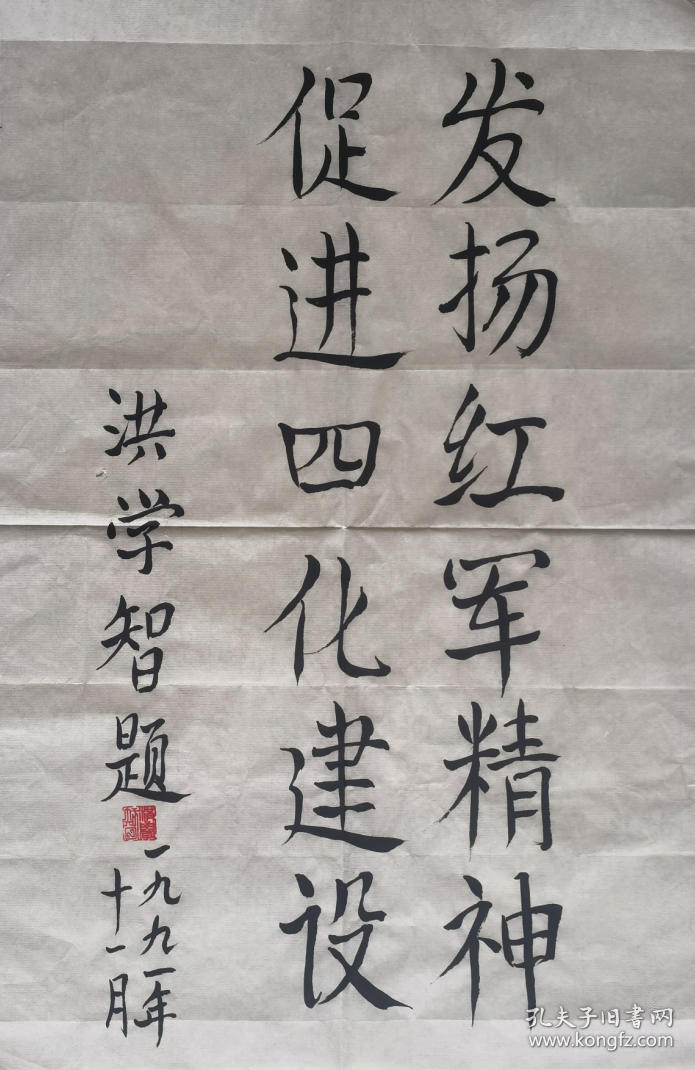 发扬红军精神
促进四化建设
洪学智题
一九九一年
十一月
孔夫子旧书网
www.kongfz.com